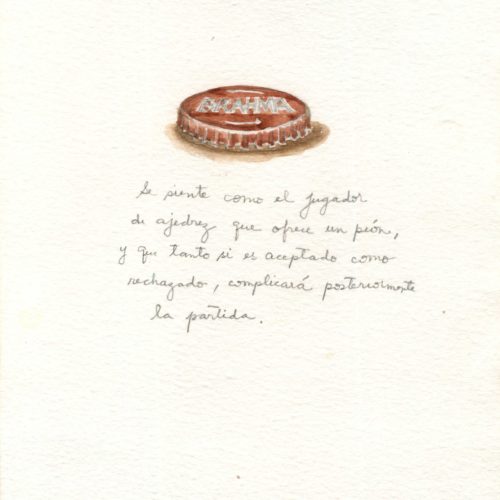 BRAHMA
Se siente como el jugador
de ajedrez que ofrece un peón,
y que tanto si es aceptado como
rechazado, complicará posteriormente
la partida.